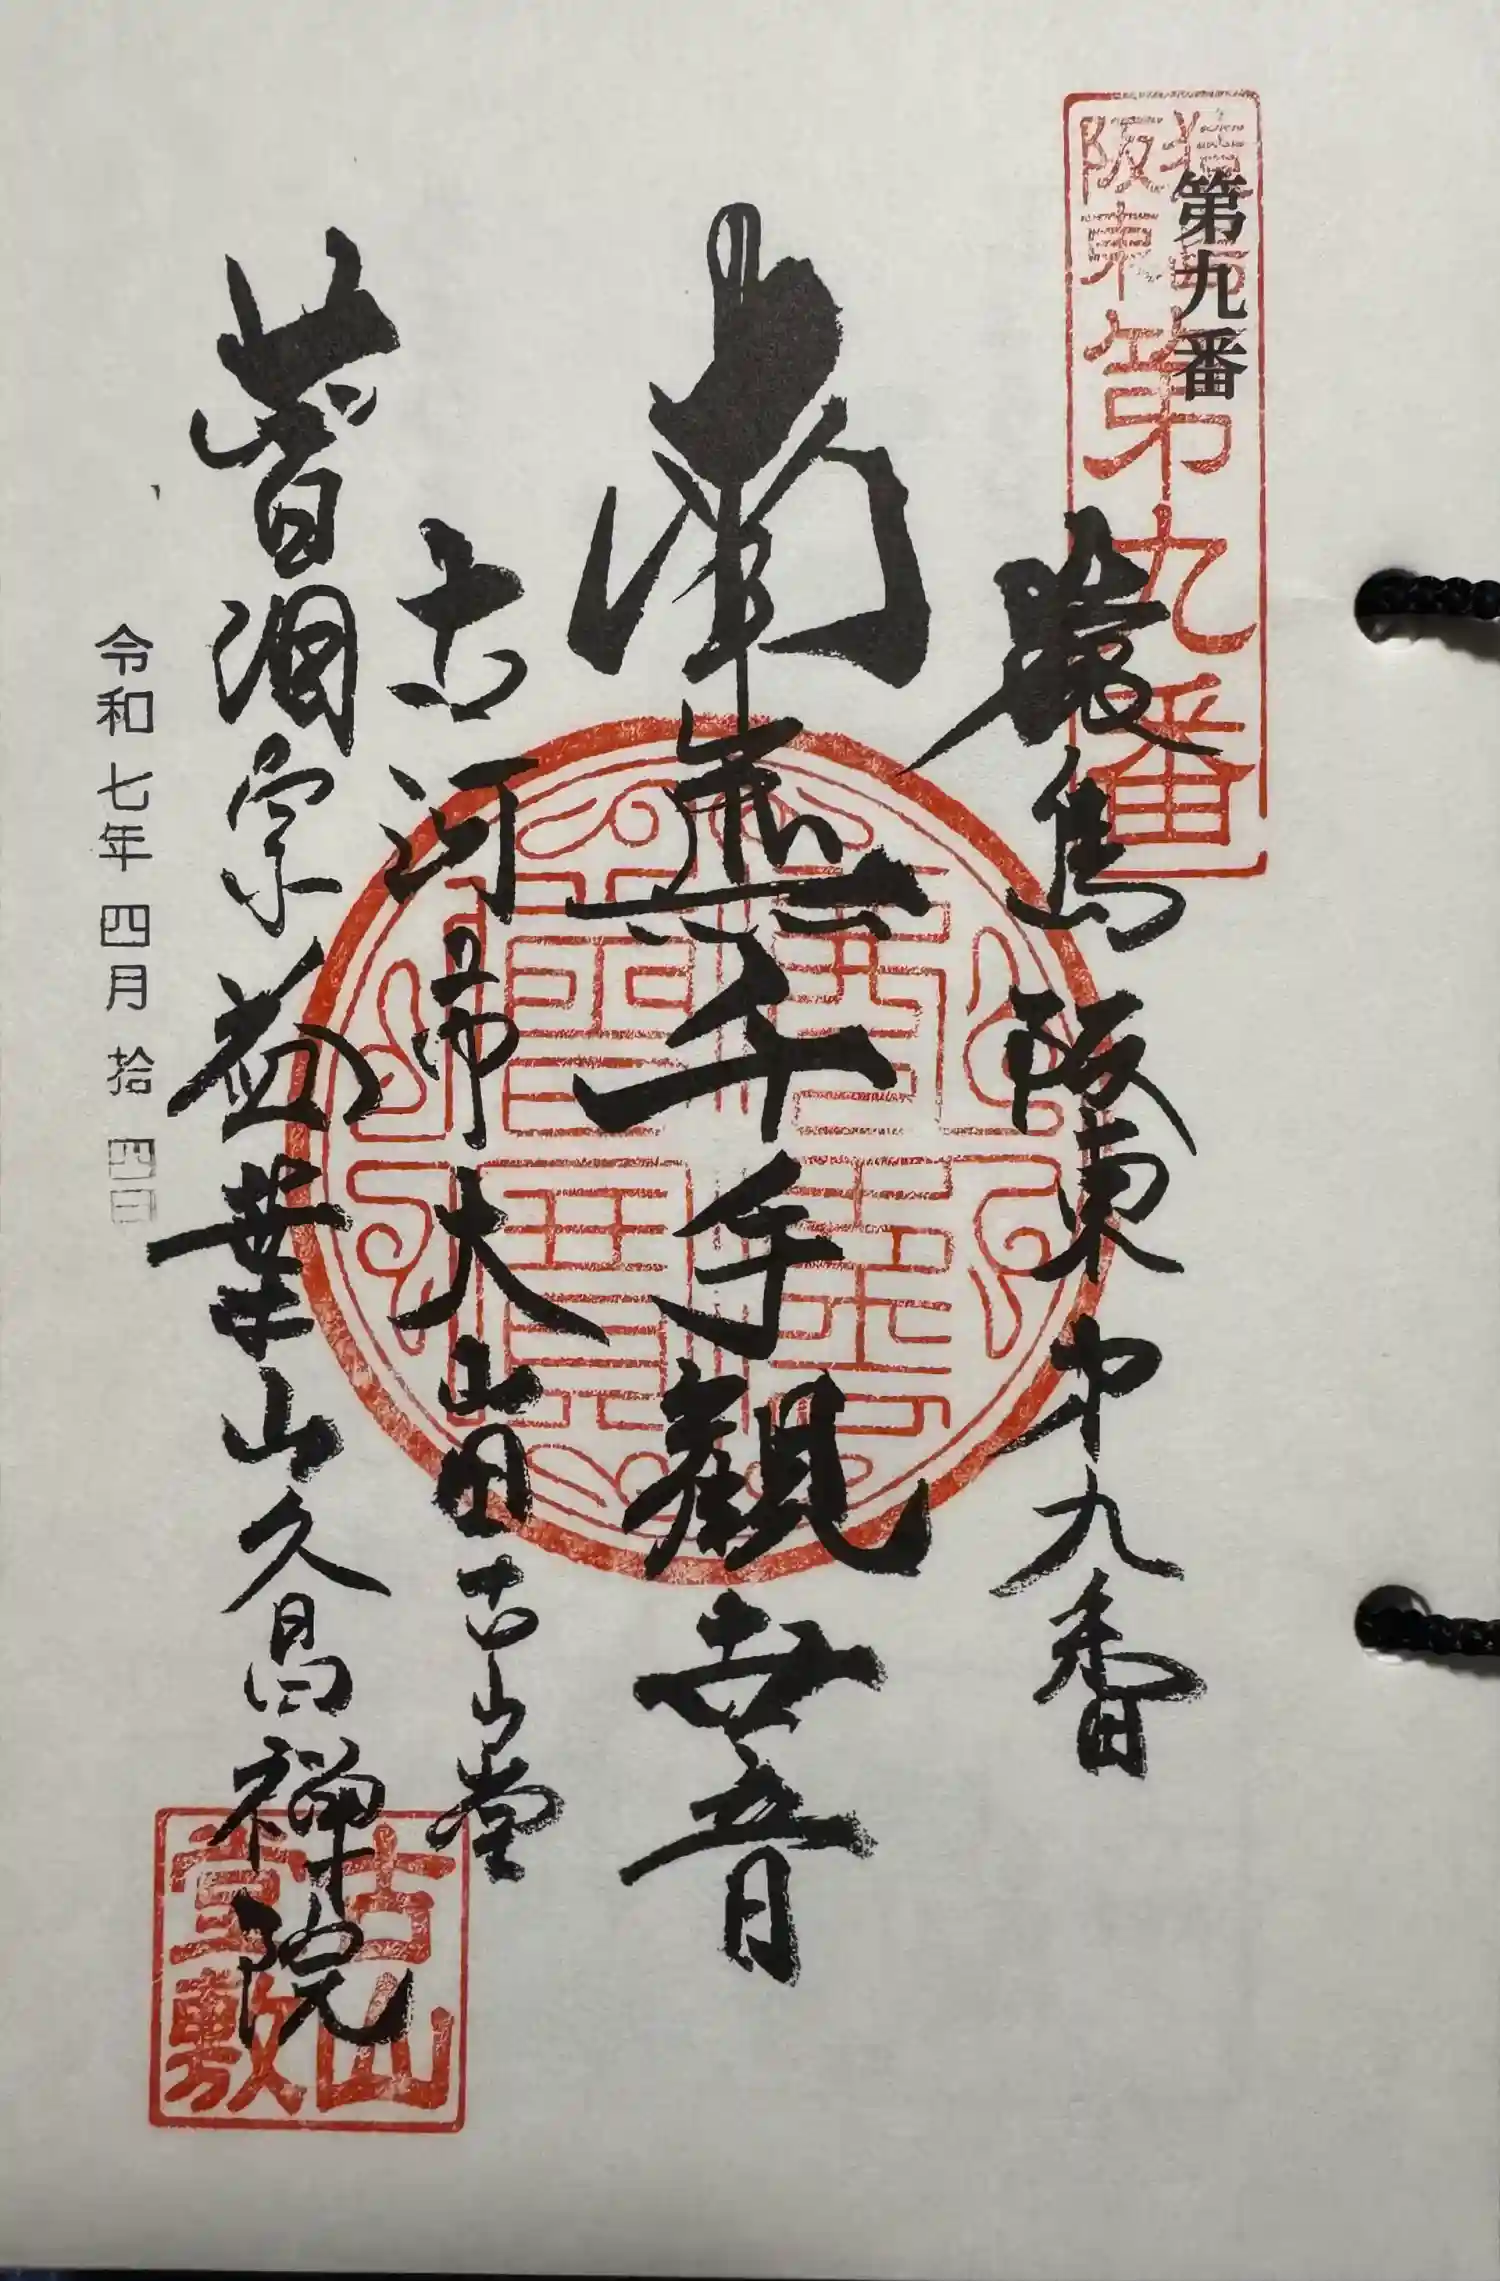 第九番
猿島
阪東
第九番
猿島阪東第九番
南無千手観世音
古河市大山田古山堂
曹洞宗益葉山久昌禅院
令和七年四月拾四日
古山
堂敷